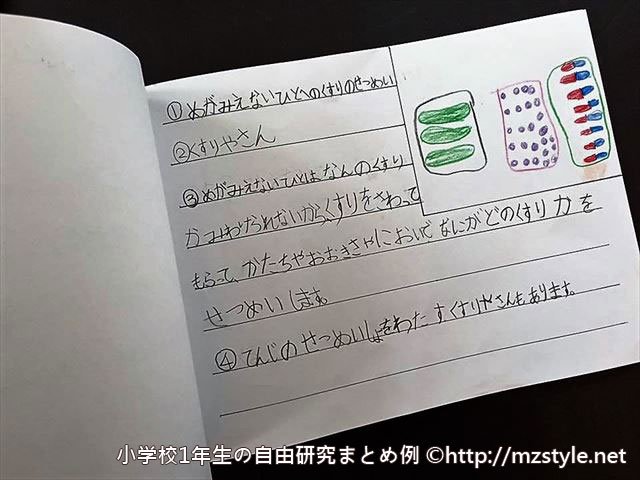 ①めがみえないひとへのくすりのせつめい
②くすりやさん
③めがみえないひとはなんのくすり
かみわけられないからくすりをさわって
もらって、かたちやおおきさやにおいでなにがどのくすりかを
せつめいします。
④てんじのせつめいしょをわたすくすりやさんもあります。
小学校1年生の自由研究まとめ例 ©http://mzstyle.net